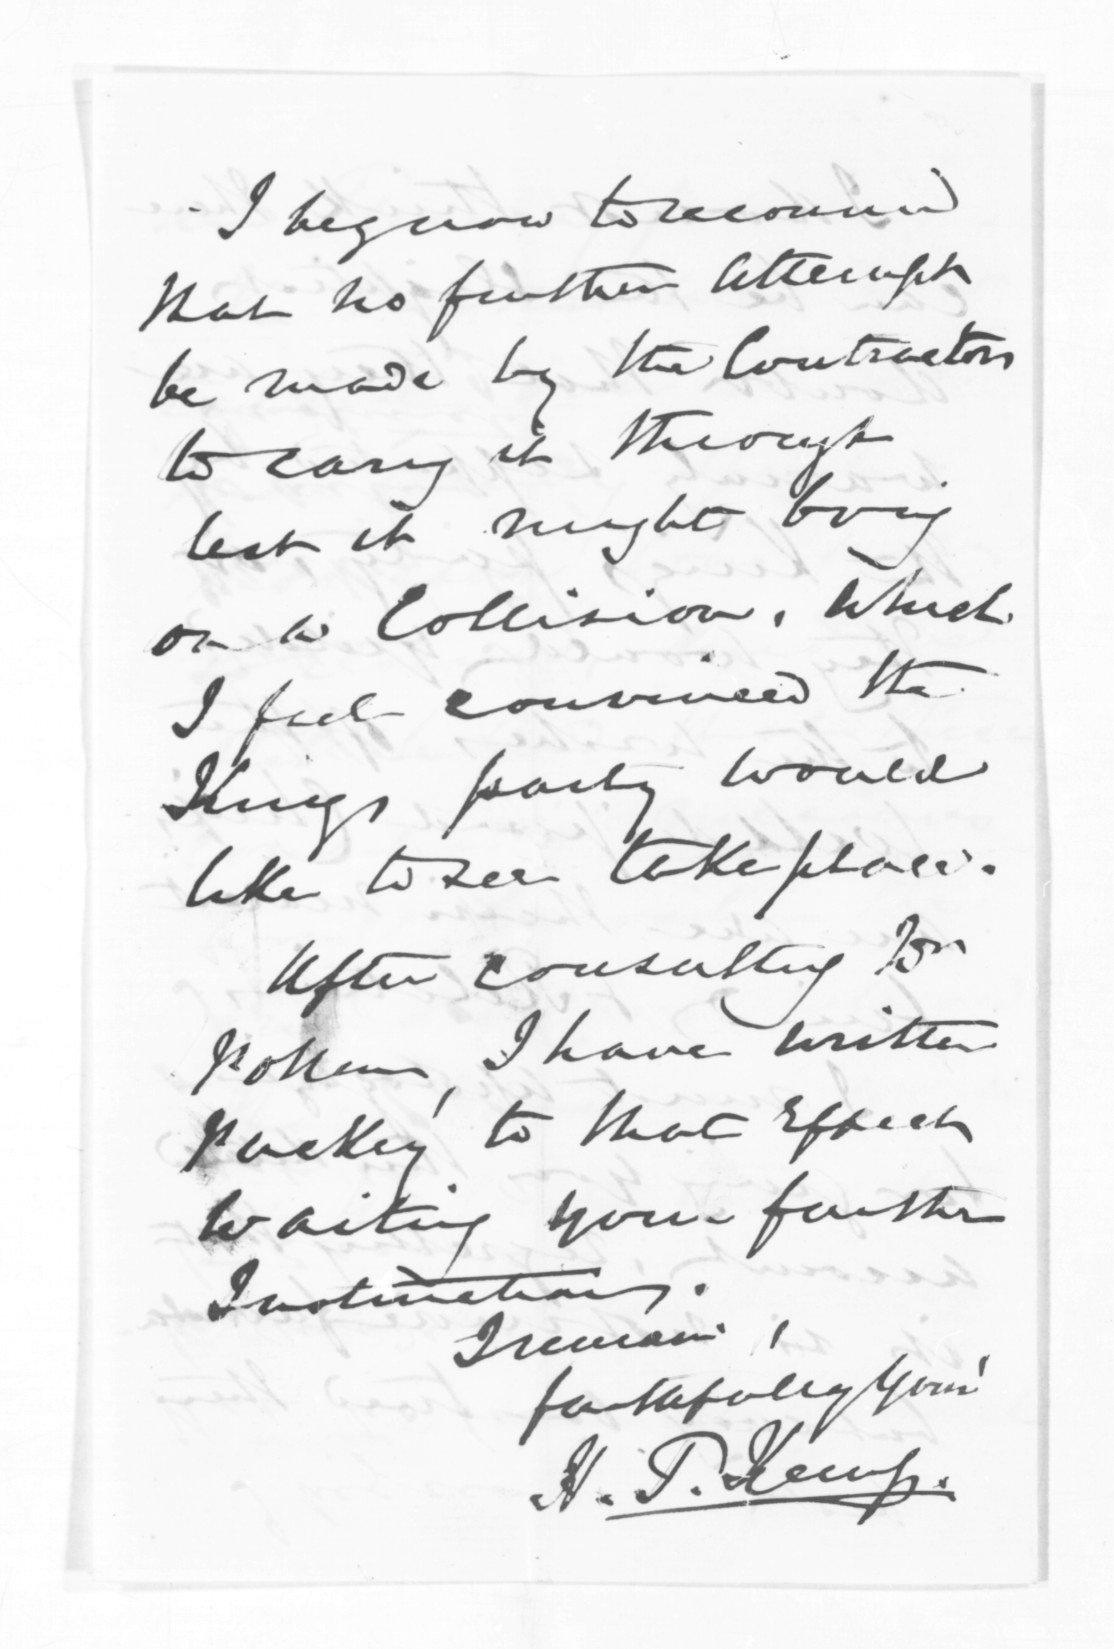 I beg now to recommend
that no further attempt
be made by the Contractors
to carry it through
lest it might bring
on a Collision, which
I feel convinced the
Kings party would
like to see take place.
After consulting Dr
Pollen, I have written
to that Effect
waiting your further
Instructions.
I remain,
faithfully Yours
H. T. Kemp.